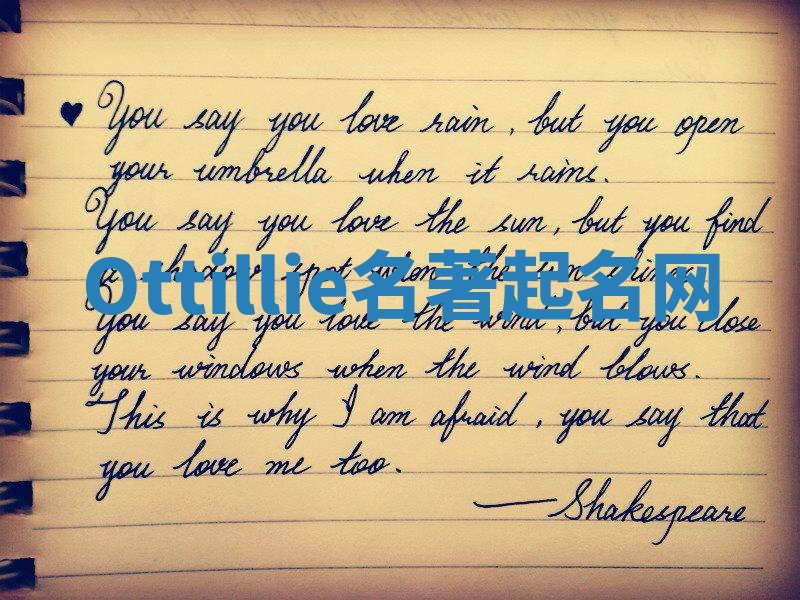 ♥ You say you love rain, but you open
your umbrella when it rains.
You say you love the sun, but you find
a shadow spot when the sun shines.
Ottillie名著起名网
You say you love the wind, but you close
your windows when the wind blows.
This is why I am afraid, you say that
you love me too.
—Shakespeare